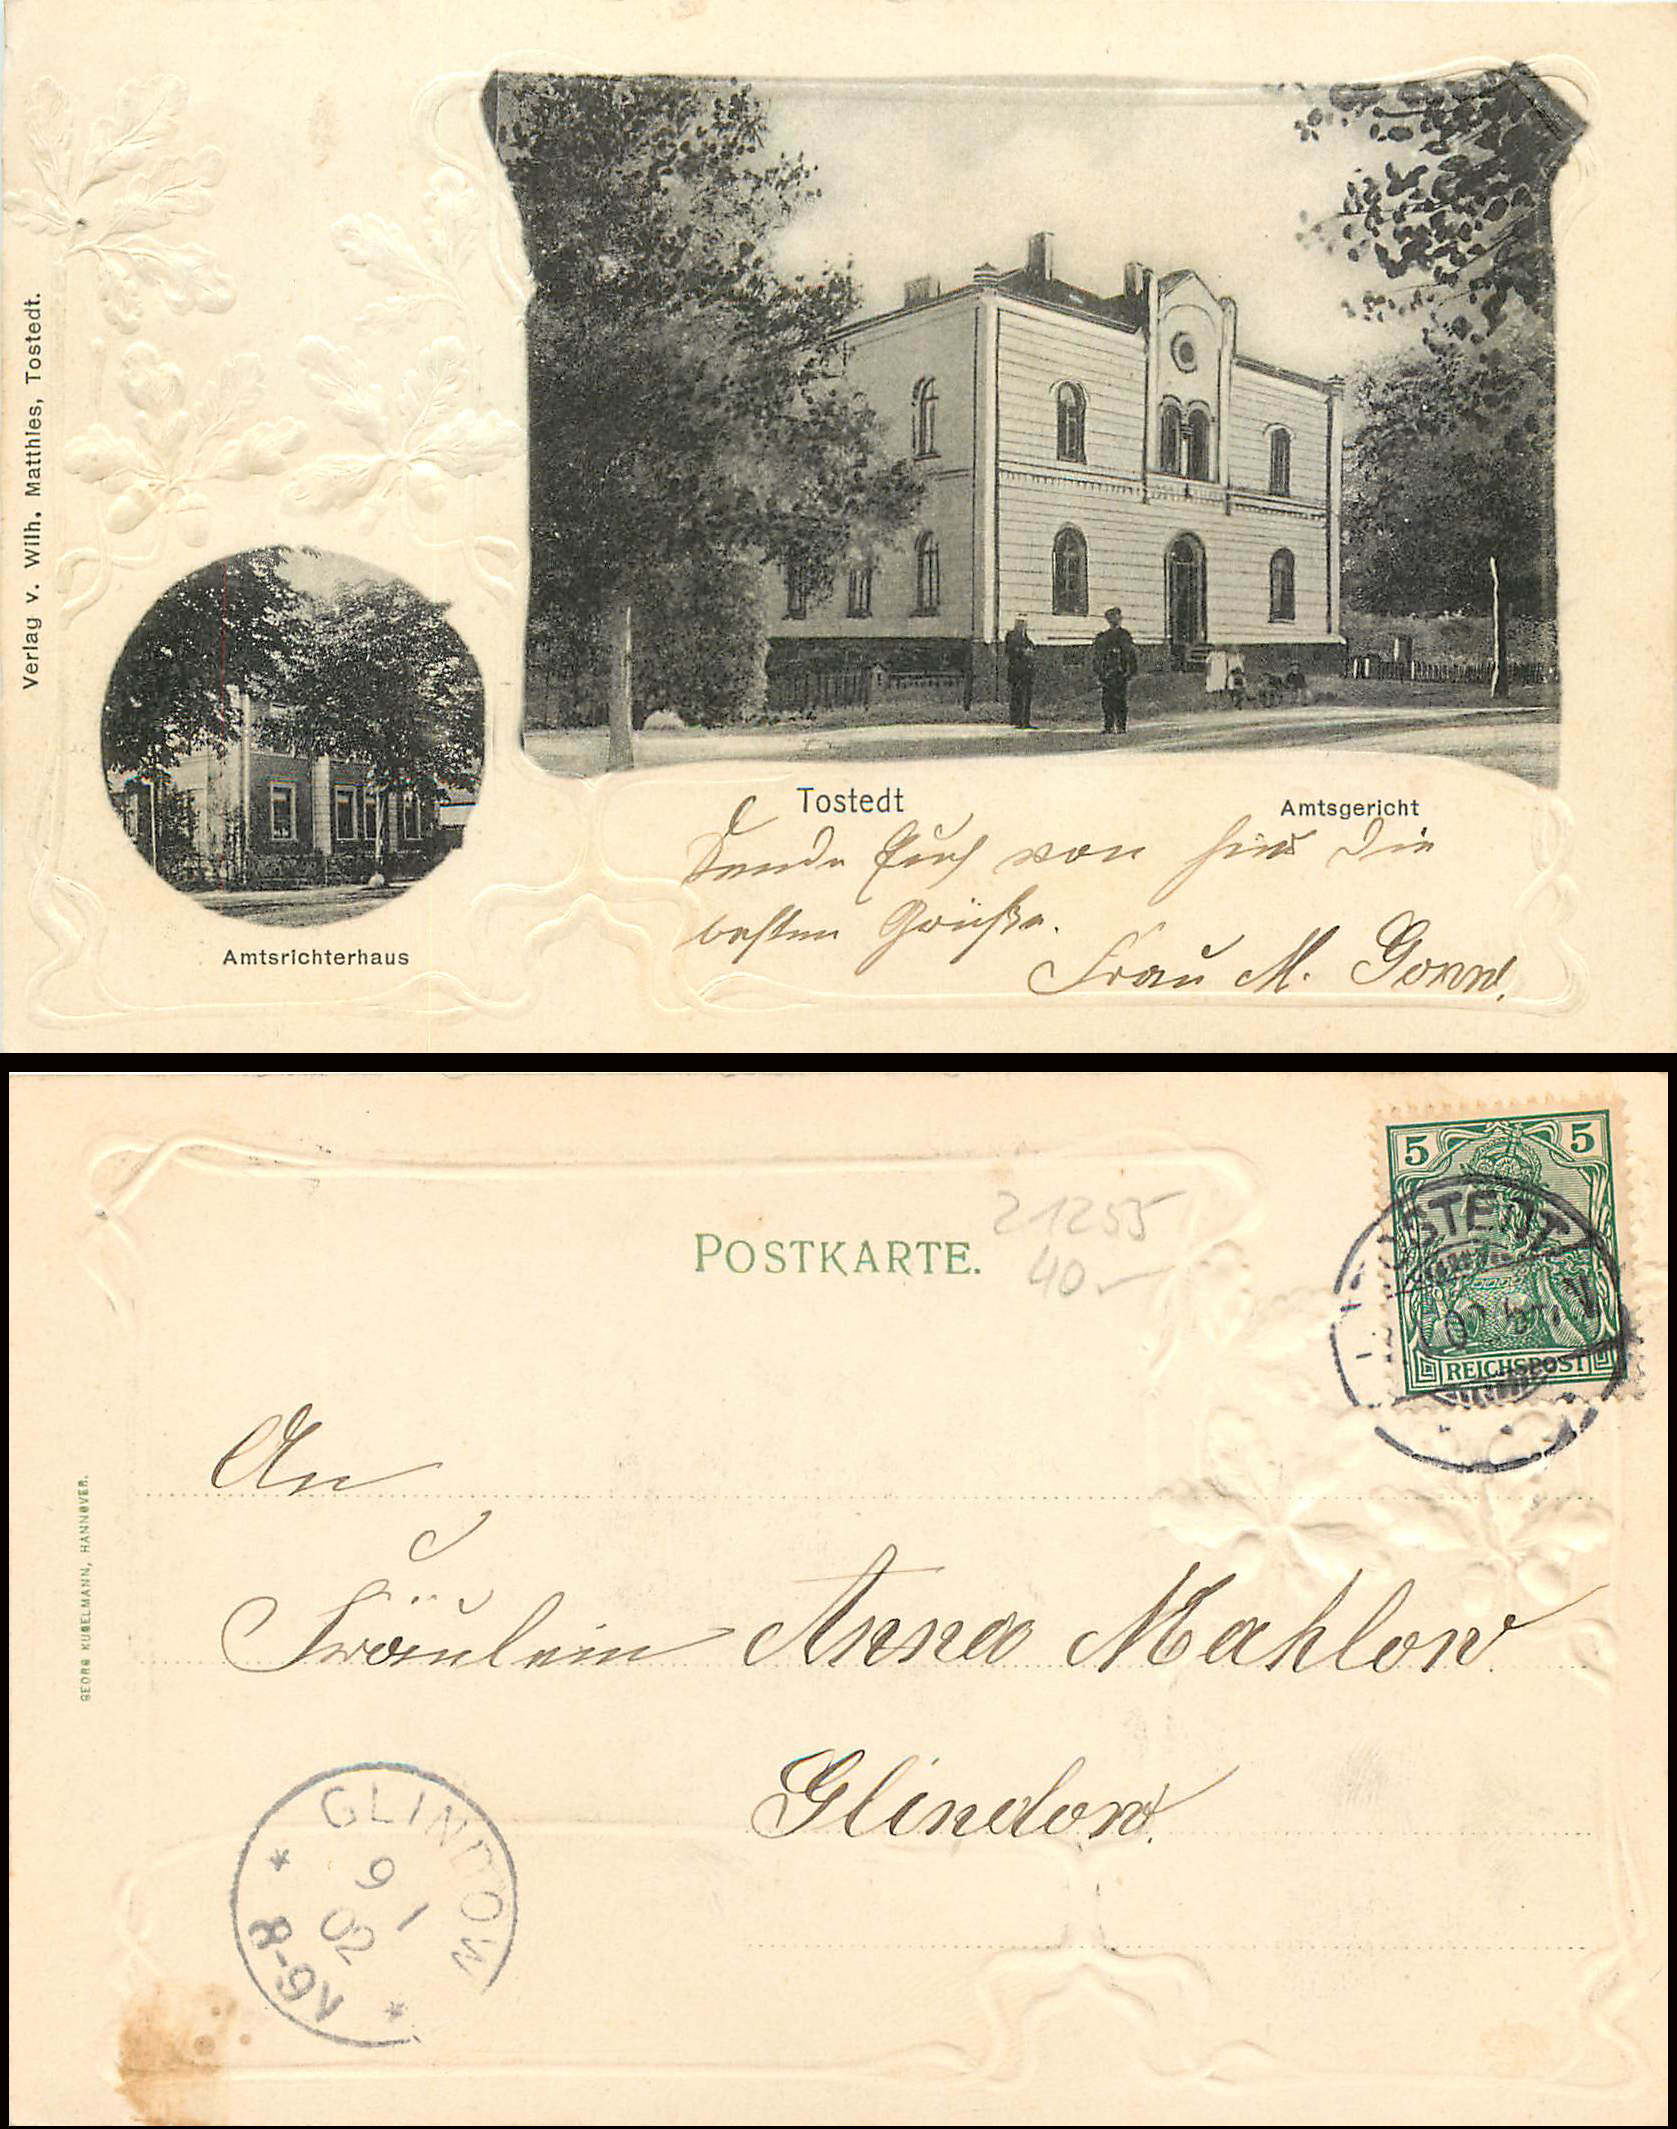 Verlag v. Wilh. Matthies, Tostedt.
Tostedt
Amtsgericht
Sende Euch von hier die
besten Grüße.
Frau M.
Amtsrichterhaus
5 5
TOSTEDT
REICHSPOST
21255
POSTKARTE.
40.-
GEORG KUGELMANN, HANNOVER.
An
Fräulein Anna Mahlow
Glindow.
GLINDOW
9 1
02
8-9V